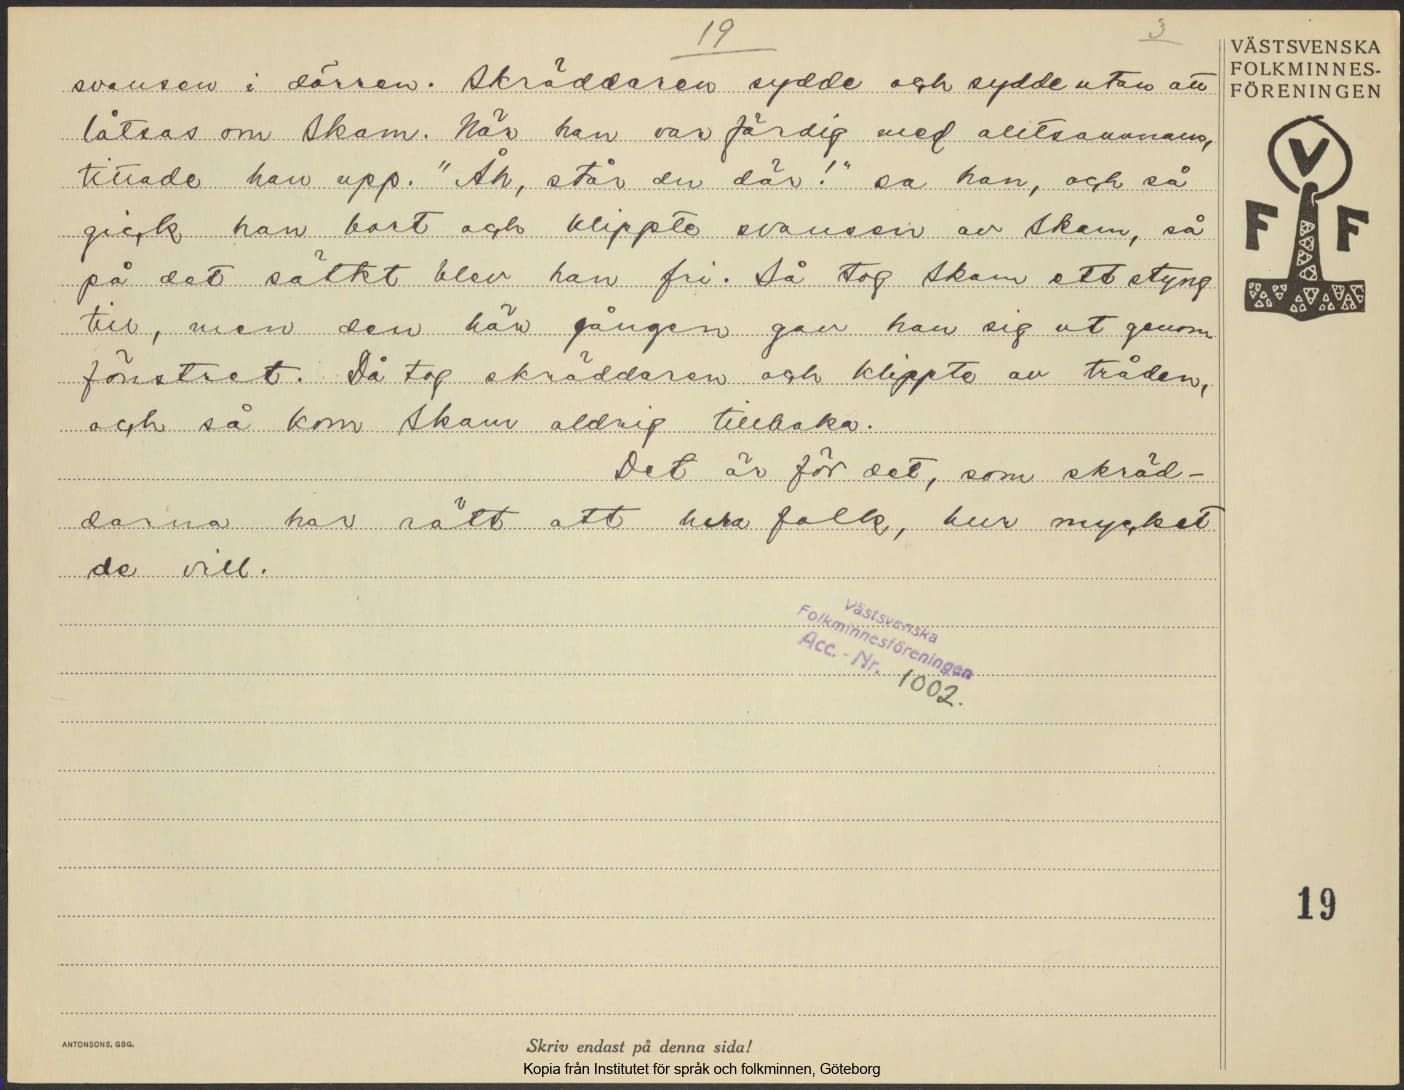 19
3
svansen i dörren. Skräddaren sydde och sydde utan att
låtsas om Skam. När han var färdig med alltsammans,
tittade han upp. "Åh, står du där!" sa han, och så
gick han bort och klippte svansen av Skam, så
på det sättet blev han fri. Så tog Skam ett styng
till, men den här gången gav han sig ut genom
fönstret. Då tog skräddaren och klippte av tråden,
och så kom Skam aldrig tillbaka.
Det är för det, som skräd-
darna har rätt att lura folk, hur mycket
de vill.
Västsvenska
Folkminnesföreningen
Acc. - Nr. 1002.
VÄSTSVENSKA
FOLKMINNES-
FÖRENINGEN
V
F F
19
ANTONSONS, GBG.
Skriv endast på denna sida!
Kopia från Institutet för språk och folkminnen, Göteborg